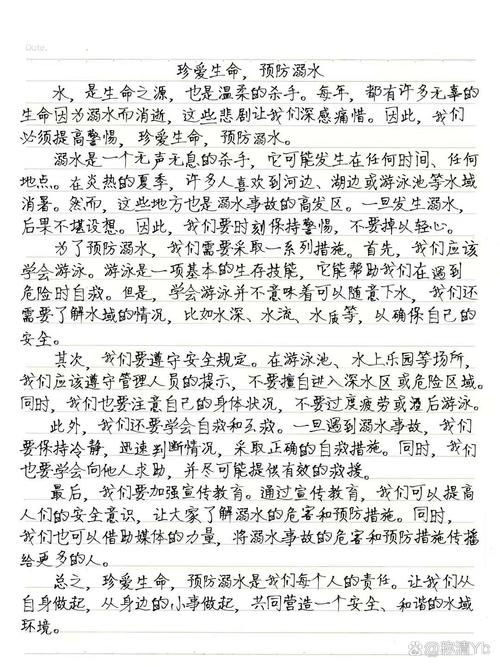 Date.
珍爱生命，预防溺水
水，是生命之源，也是温柔的杀手。每年，都有许多无辜的
生命因为溺水而消逝，这些悲剧让我们深感痛惜。因此，我们
必须提高警惕，珍爱生命，预防溺水。
溺水是一个无声无息的杀手，它可能发生在任何时间、任何
地点。在炎热的夏季，许多人喜欢到河边、湖边或游泳池等水域
消暑。然而，这些地方也是溺水事故的高发区。一旦发生溺水，
后果不堪设想。因此，我们要时刻保持警惕，不要掉以轻心。
为了预防溺水，我们需要采取一系列措施。首先，我们应该
学会游泳。游泳是一项基本的生存技能，它能帮助我们在遇到
危险时自救。但是，学会游泳并不意味着可以随意下水，我们还
需要了解水域的情况，比如水深、水流、水质等，以确保自己的
安全。
其次，我们要遵守安全规定。在游泳池、水上乐园等场所，
我们应该遵守管理人员的提示，不要擅自进入深水区或危险区域。
同时，我们也要注意自己的身体状况，不要过度疲劳或酒后游泳。
此外，我们还要学会自救和互救。一旦遇到溺水事故，我们
要保持冷静，迅速判断情况，采取正确的自救措施。同时，我们
也要学会向他人求助，并尽可能提供有效的救援。
最后，我们要加强宣传教育。通过宣传教育，我们可以提高
人们的安全意识，让大家了解溺水的危害和预防措施。同时，
我们也可以借助媒体的力量，将溺水事故的危害和预防措施传播
给更多的人。
总之，珍爱生命，预防溺水是我们每个人的责任。让我们从
自身做起，从身边的小事做起，共同营造一个安全、和谐的水域
环境。